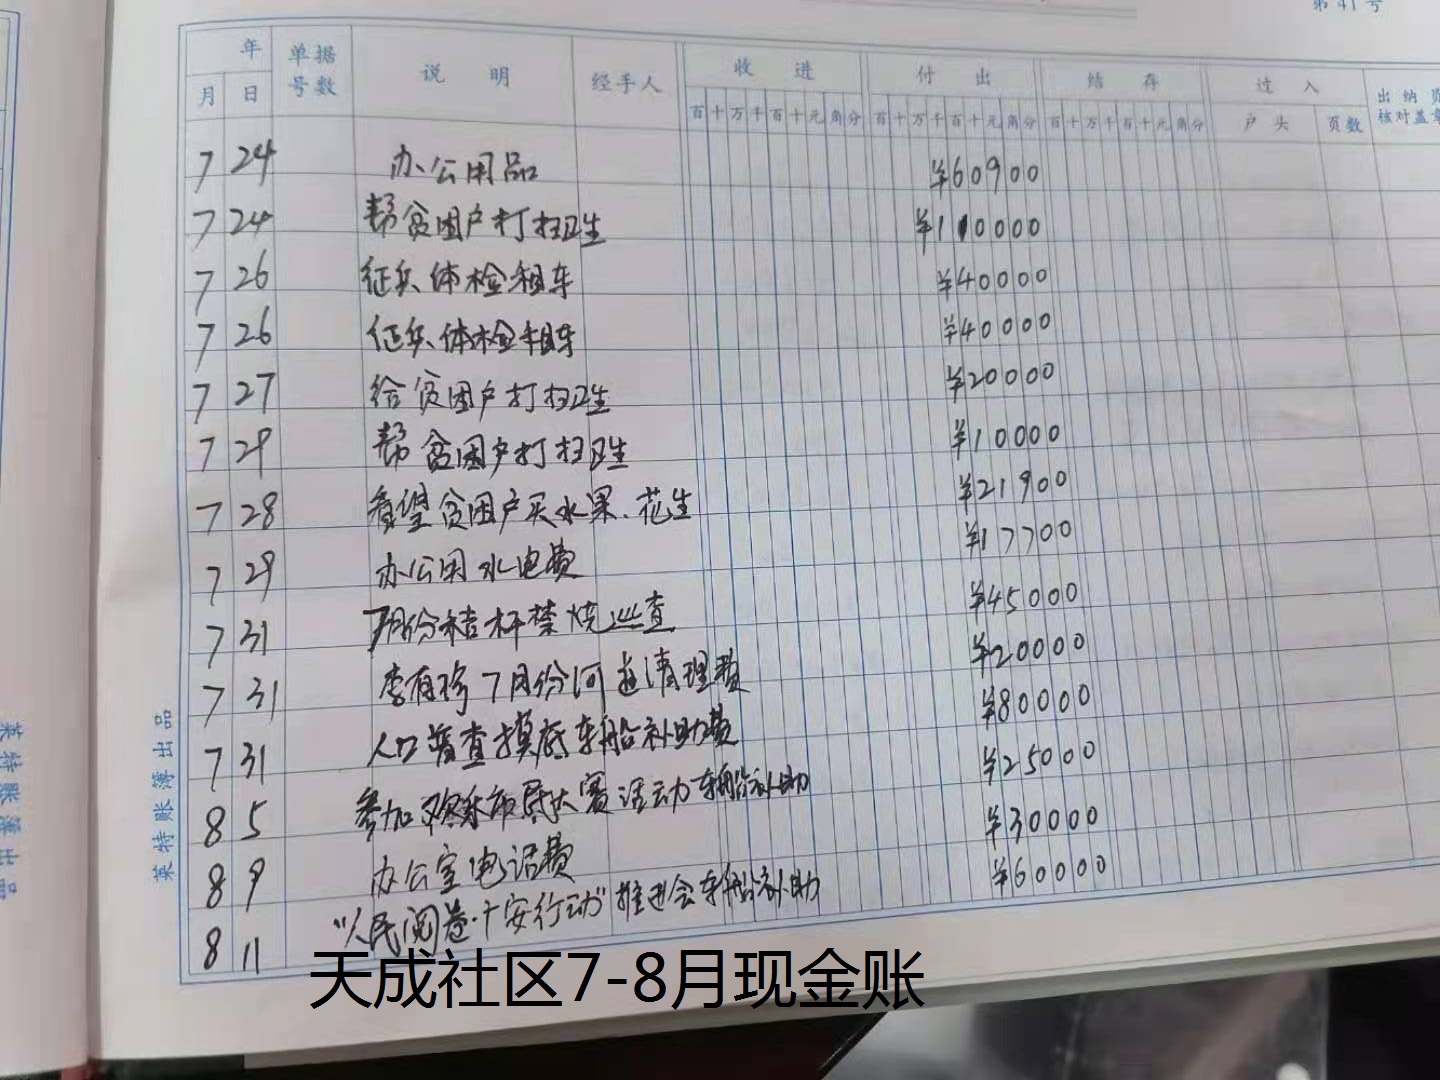 第41号
年 单据号数 说 明 经手人 收 进 付 出 结 存 过 入 出纳员核对盖章
月 日 百十万千百十元角分 百十万千百十元角分 百十万千百十元角分 户 头 页数
7 24 办公用品 ¥60900
7 24 帮贫困户打扫卫生 ¥110000
7 26 征兵体检租车 ¥40000
7 26 征兵体检租车 ¥40000
7 27 给贫困户打扫卫生 ¥20000
7 29 帮贫困户打扫卫生 ¥10000
7 28 看望贫困户买水果、花生 ¥21900
7 29 办公用水电费 ¥17700
7 31 7月份秸杆禁烧巡查 ¥45000
7 31 李有珍7月份河道清理费 ¥20000
7 31 人口普查摸底车船补助费 ¥80000
8 5 参加 大赛活动车船补助 ¥25000
8 9 办公室电话费 ¥30000
8 11 "人民阅卷·十安行动"推进会车船补助 ¥60000
莱特账簿出品
莱特账簿出品
天成社区7-8月现金账